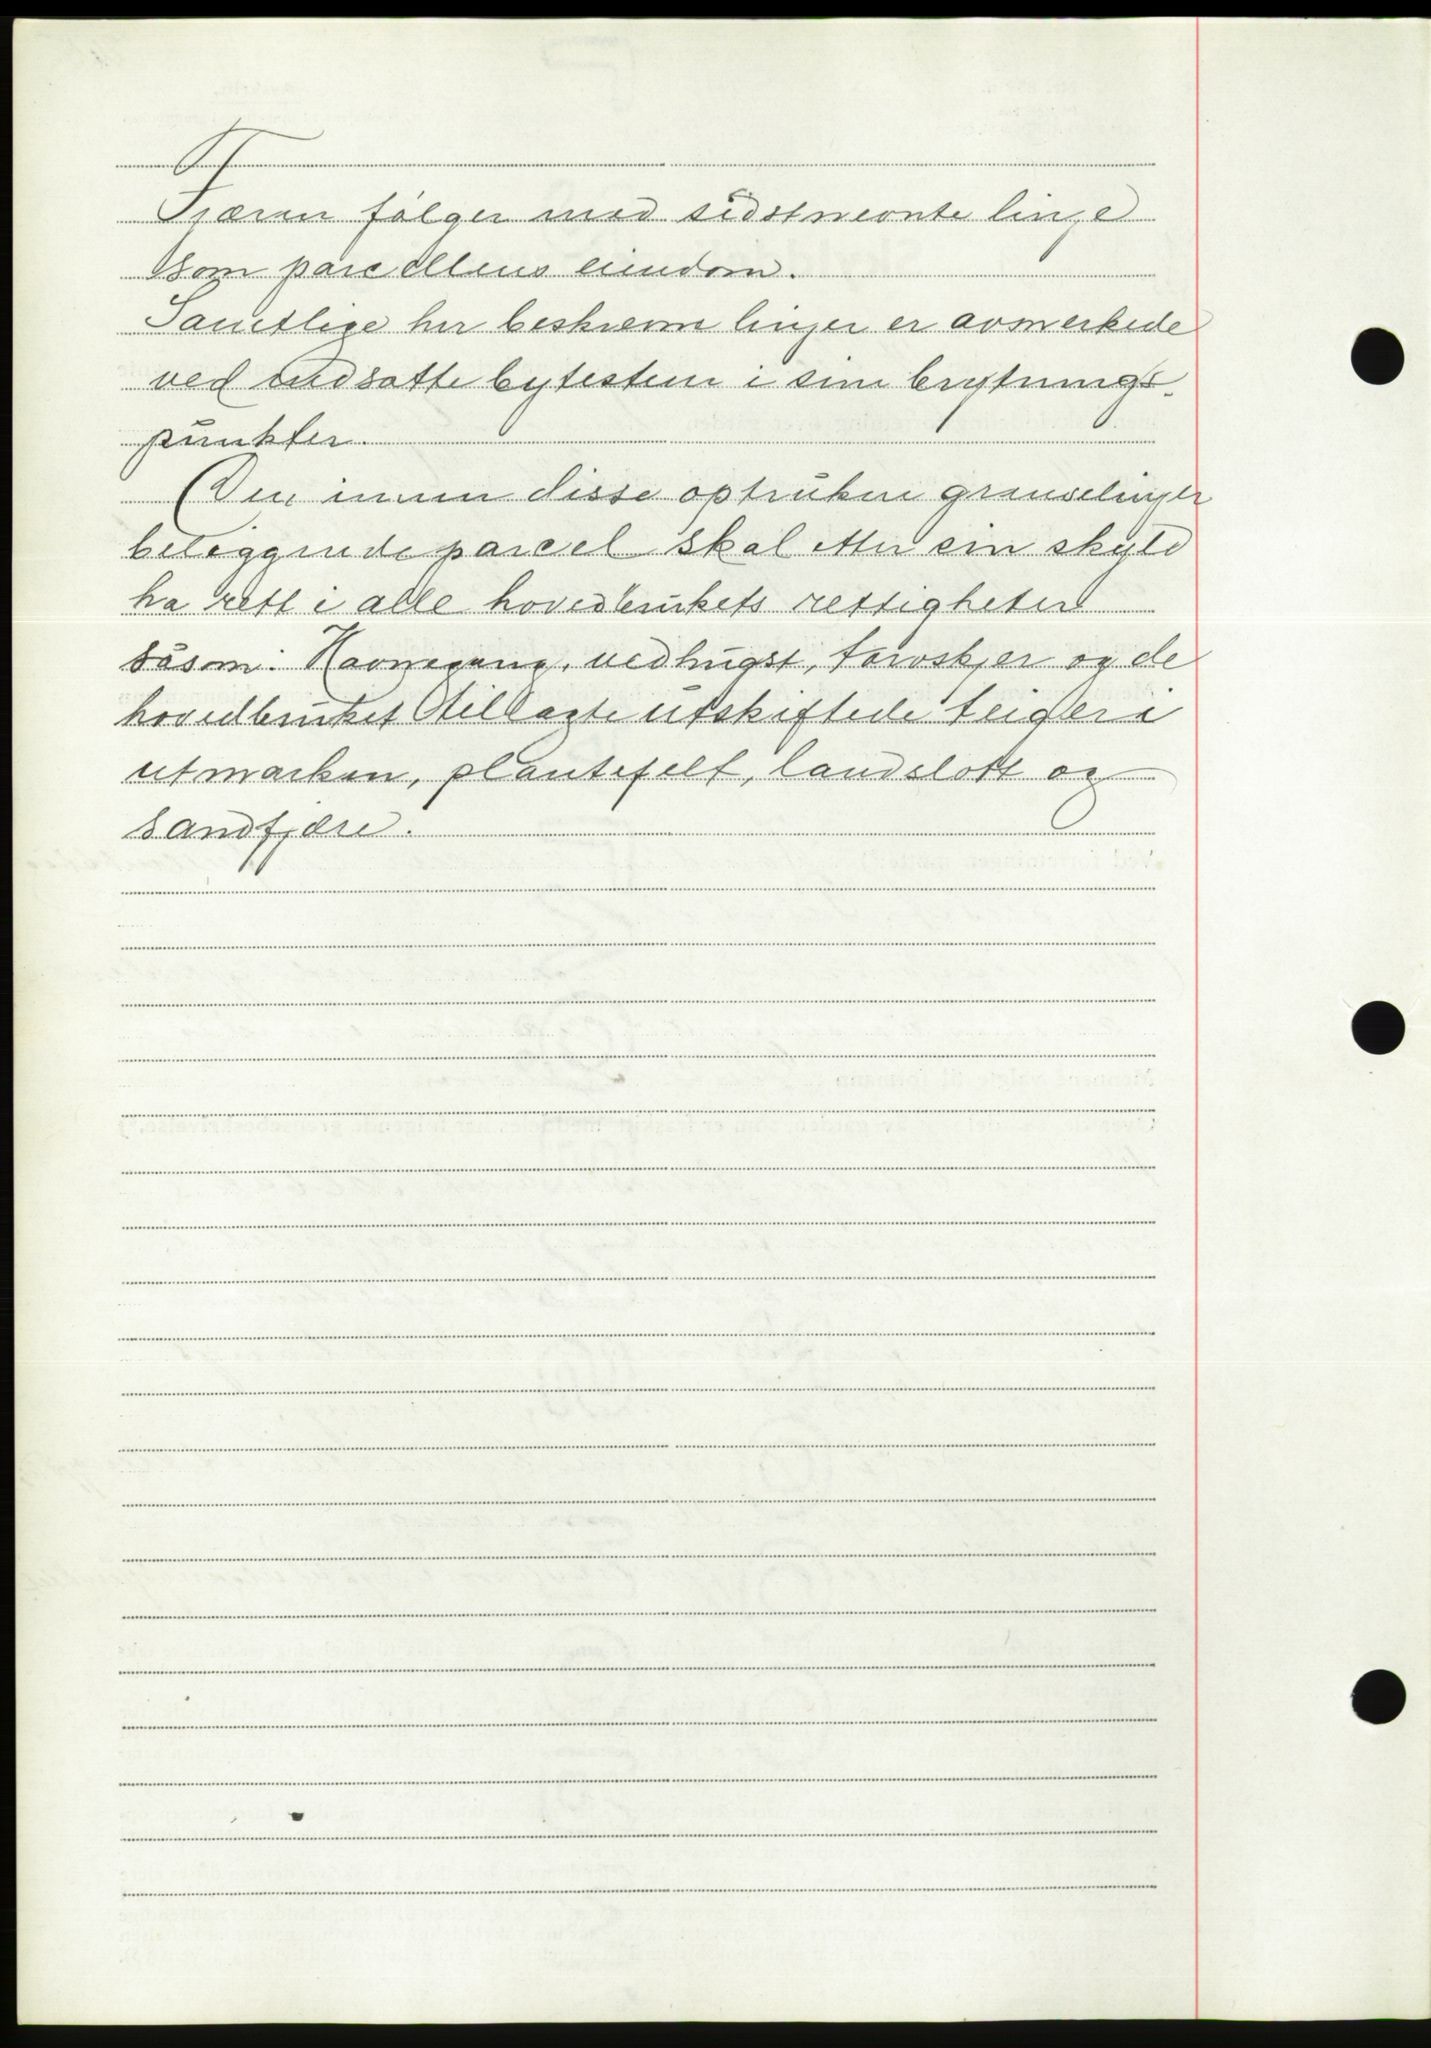 Fjæren følger med sidstnevnte linje
som parcellens eiendom.
Samtlige her beskrevne linjer er avmerkede
ved nedsatte bytestene i sine brytnings-
punkter.
Den innen disse optrukne grenselinjer
beliggende parcel skal etter sin skyld
ha rett i alle hovedbrukets rettigheter
såsom: Havnegang, vedhugst, torvskjer og de
hovedbruket tillagte utskiftede teiger i
utmarken, plantefelt, landslott og
sandfjære.